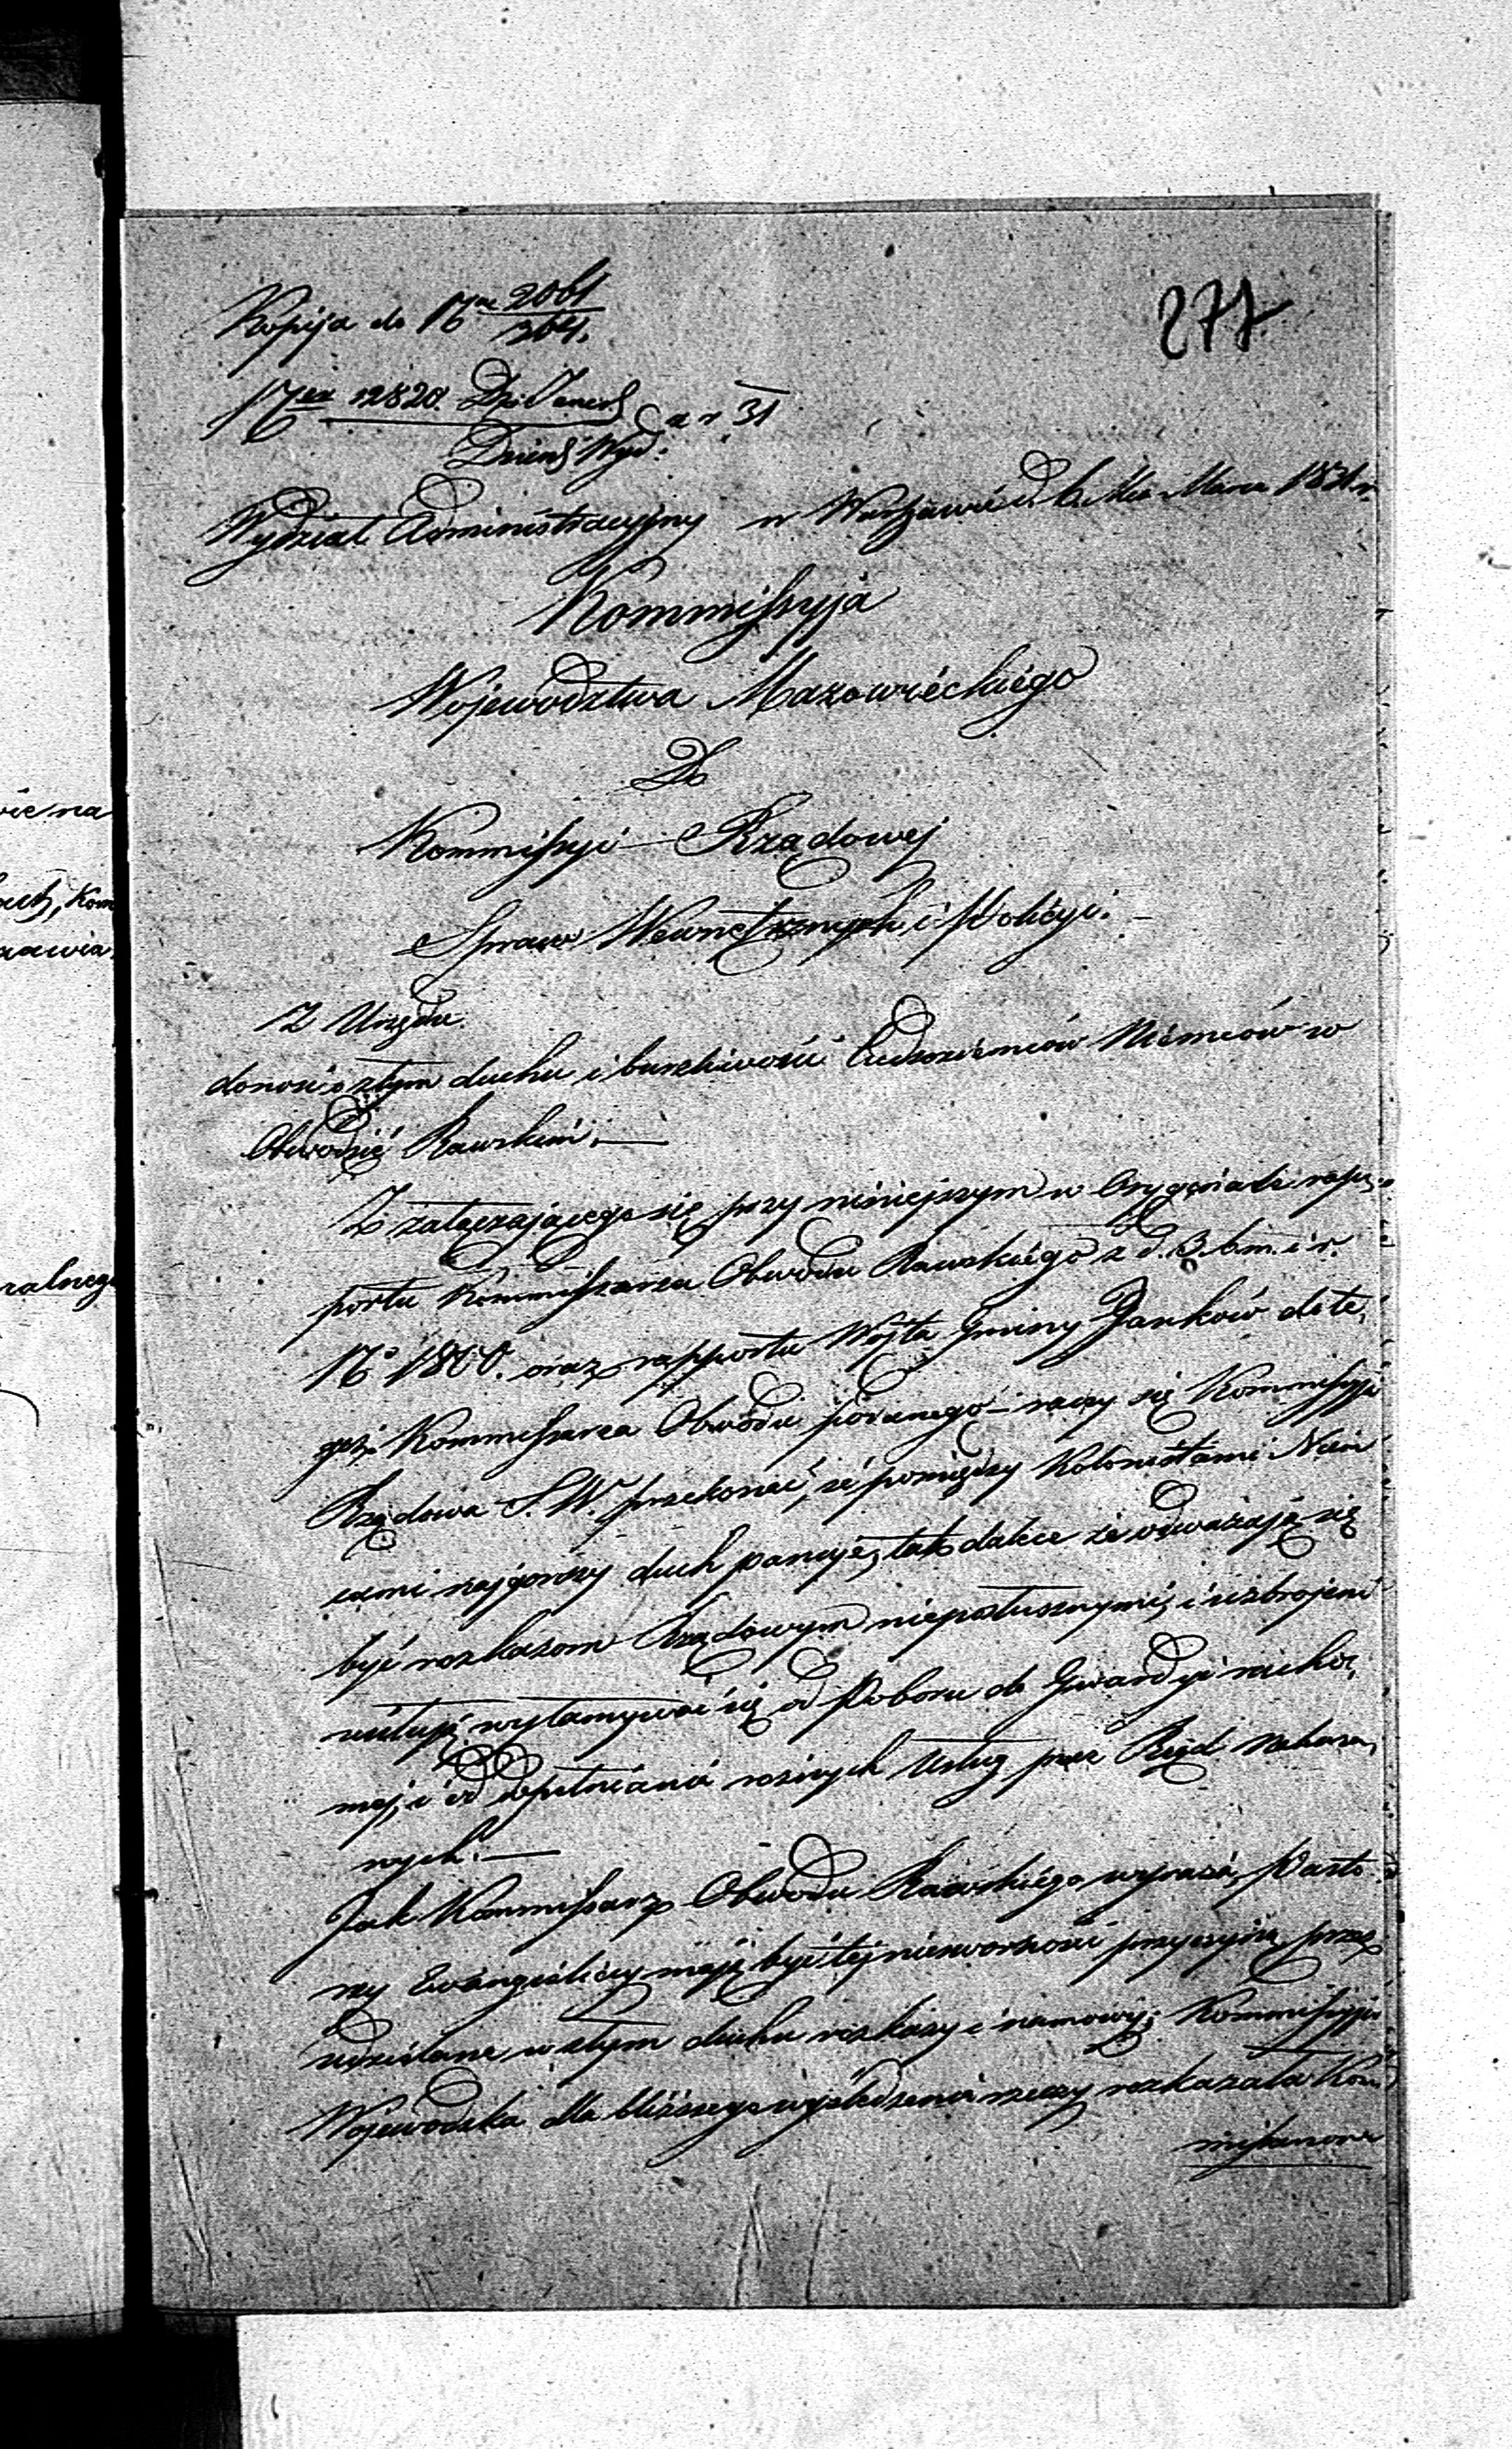 277
Kopija do N<sup>ru</sup> 2061
364.
N<sup>er</sup> 12820. Dz: Gener:
Dzien: Wyd: a r 31
Wydział Administracyjny w Warszawie d. 6. Mca Marca 1831 r.
Kommissyja
Województwa Mazowieckiégo
Do
Kommissyi Rządowej
Spraw Wewnętrznych i Policyi.
Z Urzędu
donosi o złym duchu i burzliwości Cudzoziemców Niémców w
Obwodzié Rawskim. —
Z załączającego się przy niniejszym w Oryginale rap-
portu Kommissarza Obwodu Rawskiégo z d. 3. b.m. i r.
N<sup>o</sup> 1800. oraz rapportu Wójta Gminy Janków do te-
goż Kommissarza Obwodu podanego – raczy się Kommissyja
Rządowa S. W. przekonać, że pomiędzy Kolonistami Niém
cami najgorszy duch panuje, tak dalece że odważają się
być rozkazom Rządowym nieposłusznymi, i uzbrojeni
usiłują wyłamywać się od Poboru do Gwardyi rucho-
mej, i od dopełniania roznych Usług przez Rząd nakaza-
nych. —
Jak Kommissarz Obwodu Rawskiégo wyraża, Pasto
rzy Ewangieliccy mają być tej niesworności przyczyną, przez
udzielane w złym duchu rozkazy i namowy; Kommissyja
Wojewódzka dla bliższego wyśledzenia rzeczy rozkazała Kom
missarzowi
wiena
Kom
ralnego